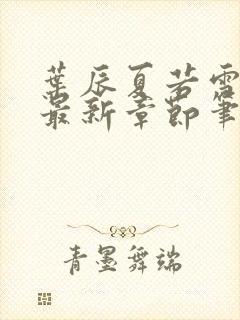 葉辰夏若雪
最新章節筆
青墨舞端